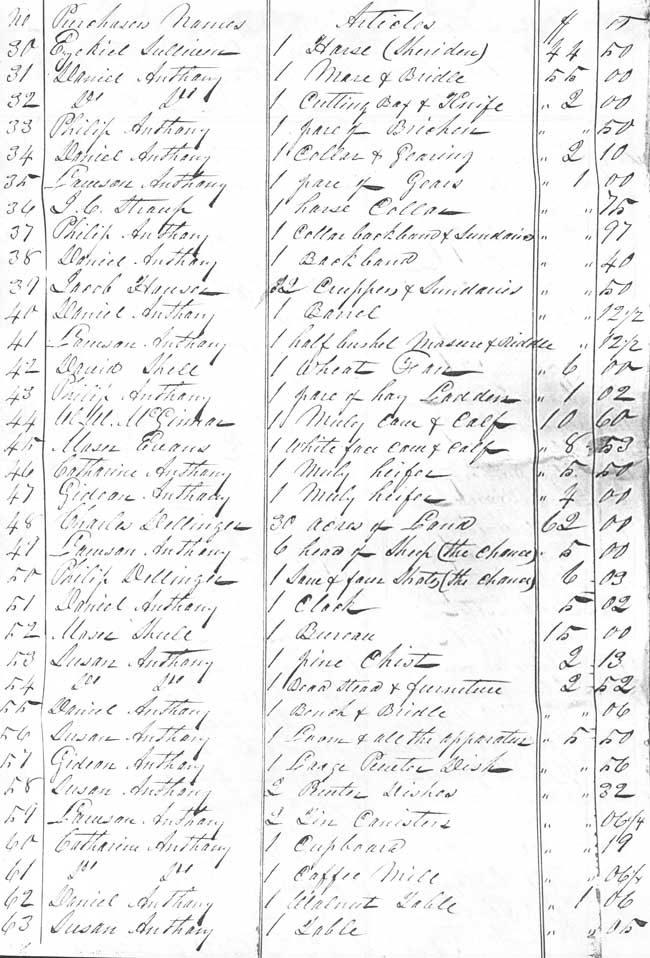 No Purchasers Names Articles $ ct
30 Ezekiel Sullivan 1 Harse (Sheriden) 44 50
31 Daniel Anthany 1 Mare & Bridle 55 00
32 Do Do 1 Cutting Bax & Knife " 2 00
33 Philip Anthany 1 pare of Brichen " " 50
34 Daniel Anthany 1 Collar & Gearing " 2 10
35 Lawson Anthany 1 pare of Gears " 1 00
36 J. C. Straup 1 harse Collar " " 75
37 Philip Anthany 1 Collar backband & Sundaries " " 97
38 Daniel Anthany 1 Backband " " 40
39 Jacob Hauser 22 Cruppers & Sundaries " " 50
40 Daniel Anthany 1 Barrel " " 12 1/2
41 Lawson Anthany 1 half bushel Measure & Riddle " 12 1/2
42 David Shell 1 Wheat Fan " 6 00
43 Philip Anthany 1 pare of hay Ladders " 1 02
44 W. M. McGinnas 1 Muly Caw & Calf 10 60
45 Maser Evans 1 White face Caw & Calf " 8 53
46 Catharine Anthany 1 Muly heifer " 5 50
47 Gidean Anthany 1 Muly heifer " 4 00
48 Charles Dellinger 30 acres of Land 62 00
49 Lawson Anthany 6 head of Sheep (the Chance) " 5 00
50 Philip Dellinger 1 Saw & four Shats (the chance) 6 03
51 Daniel Anthany 1 Clack 5 02
52 Maser Shell 1 Bureau 15 00
53 Susan Anthany 1 pine Chist 2 13
54 Do Do 1 Bead Stead & furniture 2 52
55 Daniel Anthany 1 Bench & Bridle " " 06
56 Susan Anthany 1 Laam & all the apparatus " 5 50
57 Gidean Anthany 1 Large Peuter Dish " " 56
58 Susan Anthany 2 Peuter Dishes " " 32
59 Lawson Anthany 2 Tin Canisters " " 06 1/4
60 Catharine Anthany 1 Cupboard " " 19
61 Do Do 1 Caffee Mill " " 06 1/4
62 Daniel Anthany 1 Walnut Table " 1 06
63 Susan Anthany 1 Table " " 05